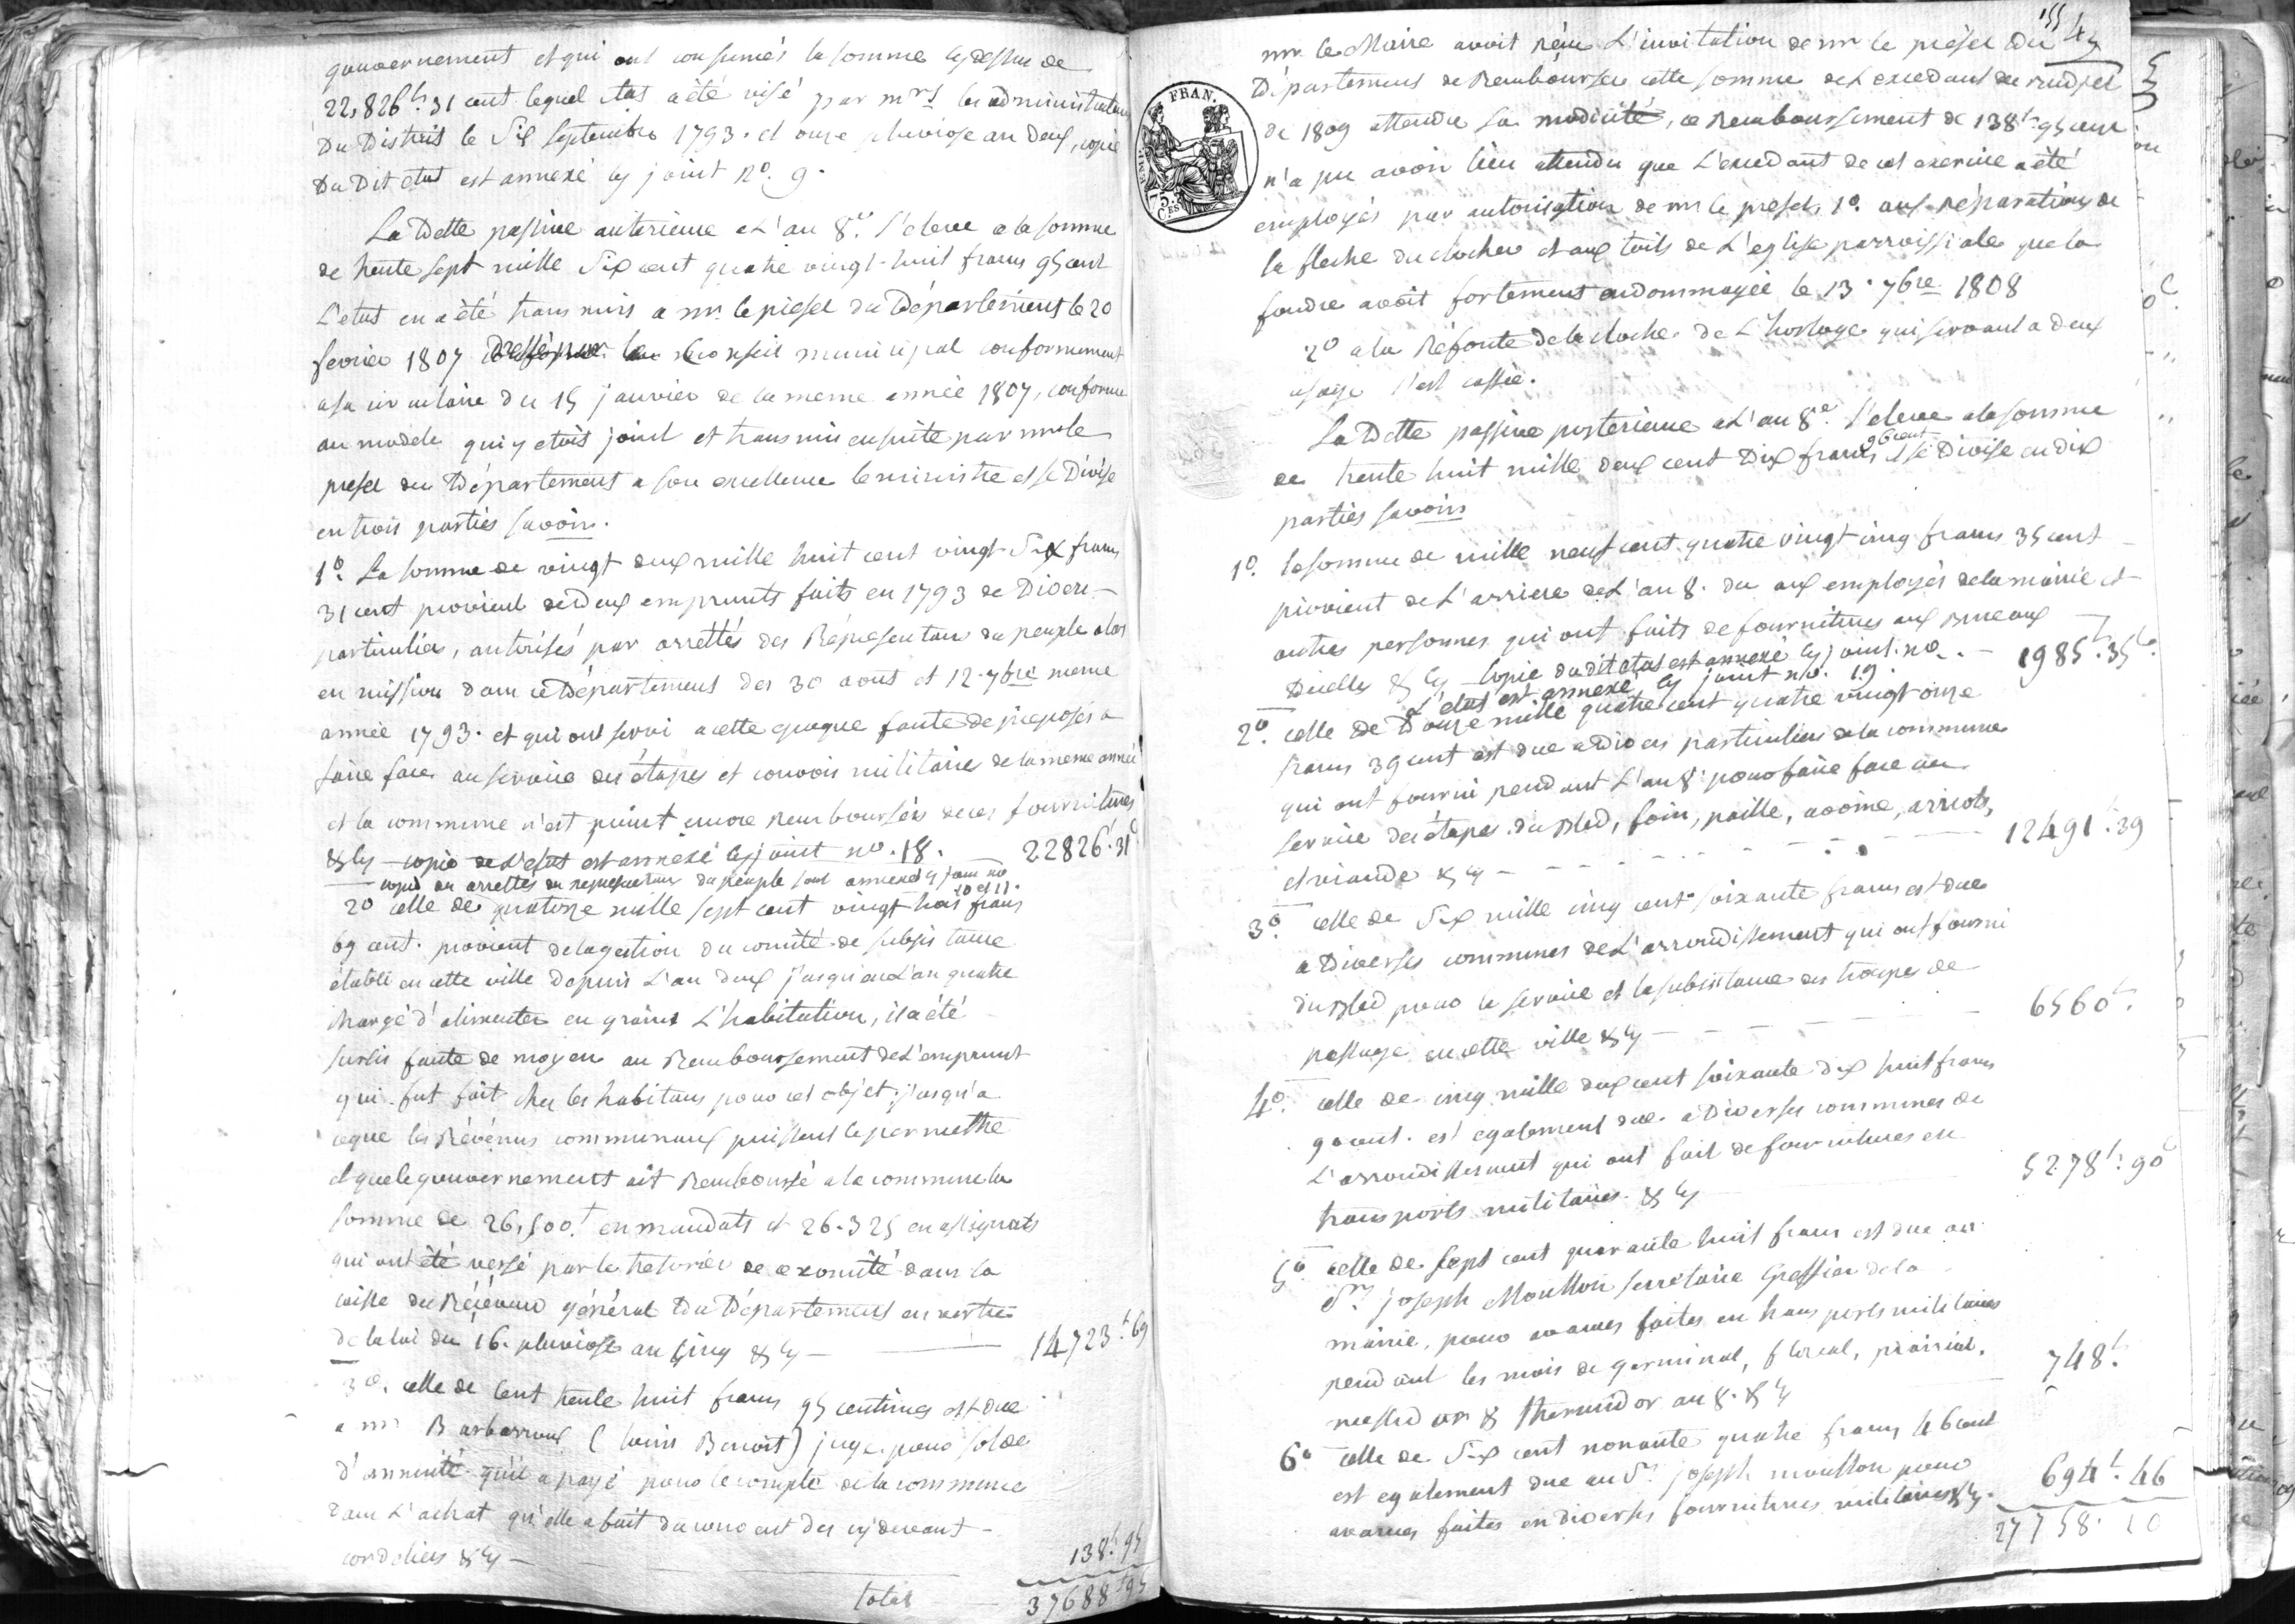 gouvernement et qui ont consumés la somme cy dessus de
22,826 31 cent lequel etat a été visé par mrs les administrateurs
Du District le Six Septembre 1793. et onze pluviose an Deux, copie
Du Dit etat est annexé cy joint no. 9.
La Dette passive anterieure a L'an 8e. S'eleve a la somme
de trente sept mille Six cent quatre vingt-huit francs 95 cent
L'etat en a été transmis a mr. le prefet du Département le 20
fevrier 1807 conseil municipal conformement
a sa circulaire du 15 janvier de la meme année 1807, conforme
au modele qui y etoit joint et transmis ensuite par mr le
prefet du Département a son excellence le ministre et se Divise
en trois parties savoir.
1o. La somme de vingt deux mille huit cent vingt Six francs
31 cent provient de Deux emprunts faits en 1793 de Divers
particulier, autorisés par arrettés des Répresentans du peuple alors
en mission dans ce Département des 30 aout et 12. 7bre meme
année 1793. et qui ont servi a cette epoque faute de preposés a
faire face au service des étapes et convois militaires de la meme année
et la commune n'est point encore Remboursée de ces fournitures
& cy copie de L'etat est annexé cy joint no. 18. 22826. 31
copie des arrettés des representans du peuple sont annexés cy joint no
10 et 11.
2o celle de quatorze mille sept cent vingt trois francs
69 cent. provient de la gestion du comité de subsistance
établi en cette ville Depuis L'an deux jusqu'au L'an quatre
chargé d'alimenter en grains L'habitation, il a été
sursis faute de moyens au Remboursement de L'emprunt
qui fut fait chez les habitans pour cet objet jusqu'a
ceque les Révénus communaux puissent le permettre
et que le gouvernement ait Remboursé a la commune la
somme de 26,500 en mandats et 26.325 en assignats
qui ont été versé par le tresorier de ce comité dans la
caisse du Réceveur général Du Département en vertu
de la loi du 16. pluviose an cinq & cy 14723. 69
3o. celle de Cent trente huit francs 95 centimes est due
a mr Barbarroux (Louis Benoit) juge pour solde
d'annuité qu'il a payé pour le compte de la commune
dans L'achat qu'elle a fait du couvent des cy devant
cordeliers & cy 138. 95
total 37688 95
155
mr. le Maire avoit réçu L'invitation de mr le prefet Du
Département de Rembourser cette somme de L'excedant du budjet
de 1809 attendu sa modicité, ce Remboursement de 138 95 cent
n'a pu avoir lieu attendu que L'excedant de cet exercice a été
employés par autorisation de mr le prefet, 1o. aux Réparations de
la fleche du clocher et aux toits de L'eglise parroissiale que la
foudre avoit fortement endommagée le 13. 7bre 1808
2o a la Réfonte de la cloche de L'horloge qui servant a deux
usage s'est cassée.
FRAN.
EMP.
75.
CES
La Dette passive posterieure a L'an 8e. S'eleve a la somme
de trente huit mille deux cent Dix francs 96 cent et se Divise en dix
parties savoir
1o. la somme de mille neuf cent quatre vingt cinq francs 35 cent
provient de L'arriere de L'an 8. du aux employés de la mairie et
autres personnes qui ont faits de fournitures aux Bureaux
Dicelle & cy Copie du dit etat est annexé cy joint. no. 1985. 35
L'etat est annexé cy joint no. 19
2o. celle de Douze mille quatre cent quatre vingt onze
francs 39 cent est due a Divers particuliers de la commune
qui ont fourni pendant L'an 8. pour faire face au
service des étapes du Bled, foin, paille, avoine, aricots,
et viande & cy 12491. 39
3o. celle de Six mille cinq cent soixante francs est due
a Diverses communes de L'arrondissement qui ont fourni
du Bled pour le service et la subsistance des troupes de
passage en cette ville & cy 6560.
4o. celle de cinq mille deux cent soixante dix huit francs
90 cent. est egalement due a Diverses communes de
L'arrondissement qui ont fait de fournitures en
transports militaires & cy 5278. 90
5o. celle de Sept cent quarante huit francs est due au
Sr. joseph Moutton secretaire Greffier de la
mairie, pour avances faites en transports militaires
pendant les mois de germinal, floreal, prairial,
messidor & thermidor an 8. & cy 748.
6o celle de Six cent nonante quatre francs 46 cent
est egalement due au Sr. joseph moutton pour
avances faites en diverses fournitures militaires & cy. 694. 46
27758. 10